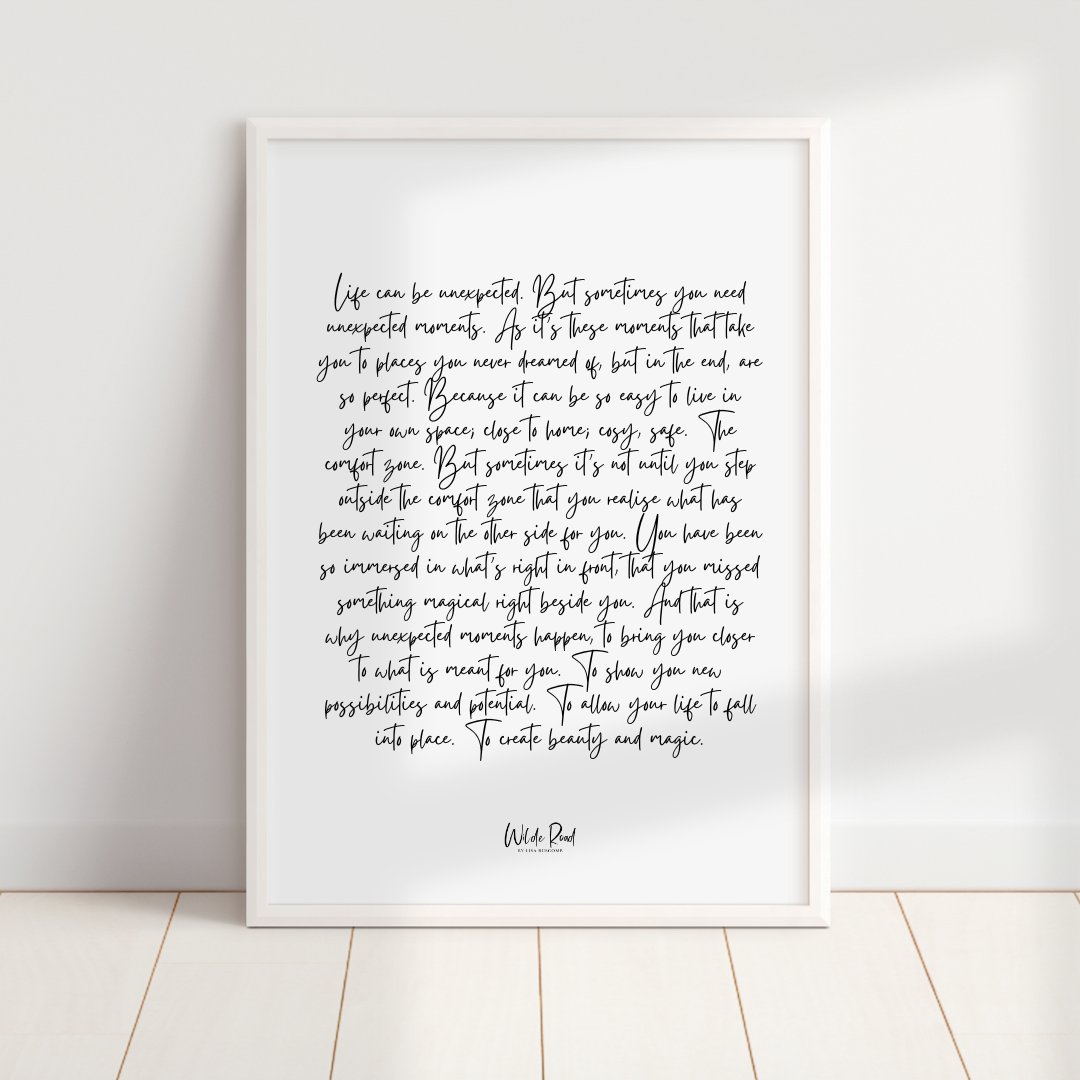 Life can be unexpected. But sometimes you need
unexpected moments. As it's these moments that take
you to places you never dreamed of, but in the end, are
so perfect. Because it can be so easy to live in
your own space; close to home; cosy, safe. The
comfort zone. But sometimes it's not until you step
outside the comfort zone that you realise what has
been waiting on the other side for you. You have been
so immersed in what's right in front, that you missed
something magical right beside you. And that is
why unexpected moments happen, to bring you closer
to what is meant for you. To show you new
possibilities and potential. To allow your life to fall
into place. To create beauty and magic.
Wilde Road
BY LISA BUSCOMB